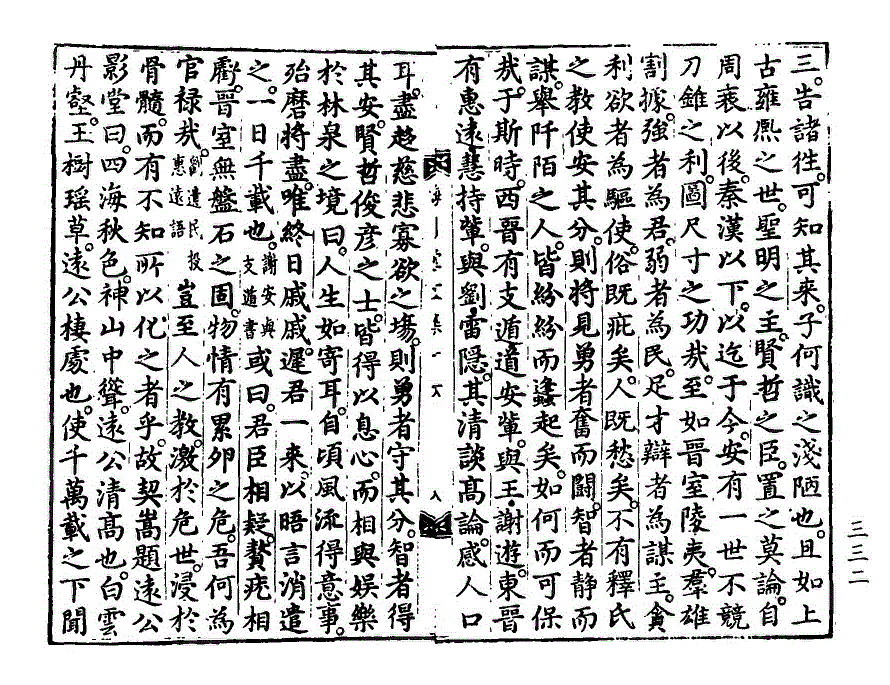 三。告諸往。可知其來。子何識之淺陋也。且如上
古雍熙之世。聖明之主。賢哲之臣。置之莫論。自
周衰以後。秦漢以下。以迄于今。安有一世不競
刀錐之利。圖尺寸之功哉。至如晉室陵夷。羣雄
割據。強者為君。弱者為民。足才辯者為謀主。貪
利欲者為驅使。俗既疵矣。人既愁矣。不有釋氏
之教使安其分。則將見勇者奮而鬬。智者靜而
謀。舉阡陌之人。皆紛紛而蠭起矣。如何而可保
哉。于斯時。西晉有支遁道安輩。與王謝遊。東晉
有惠遠慧持輩。與劉雷隱。其清談高論。感人口
耳。盡趍慈悲寡欲之塲。則勇者守其分。智者得
其安。賢哲俊彦之士。皆得以息心。而相與娯樂
於林泉之境。曰。人生如寄耳。自頃風流得意事。
殆磨將盡。唯終日戚戚。遲君一來。以晤言消遣
之。一日千載也。謝安與支遁書或曰。君臣相疑。贅疣相
虧。晉室無盤石之固。物情有累卵之危。吾何為
官禄哉。劉遺民投惠遠語 豈至人之教。激於危世。浸於
骨髓。而有不知所以化之者乎。故契嵩題遠公
影堂曰。四海秋色。神山中聳。遠公清髙也。白雲
丹壑。玉樹瑶草。遠公棲處也。使千萬載之下聞
三三二